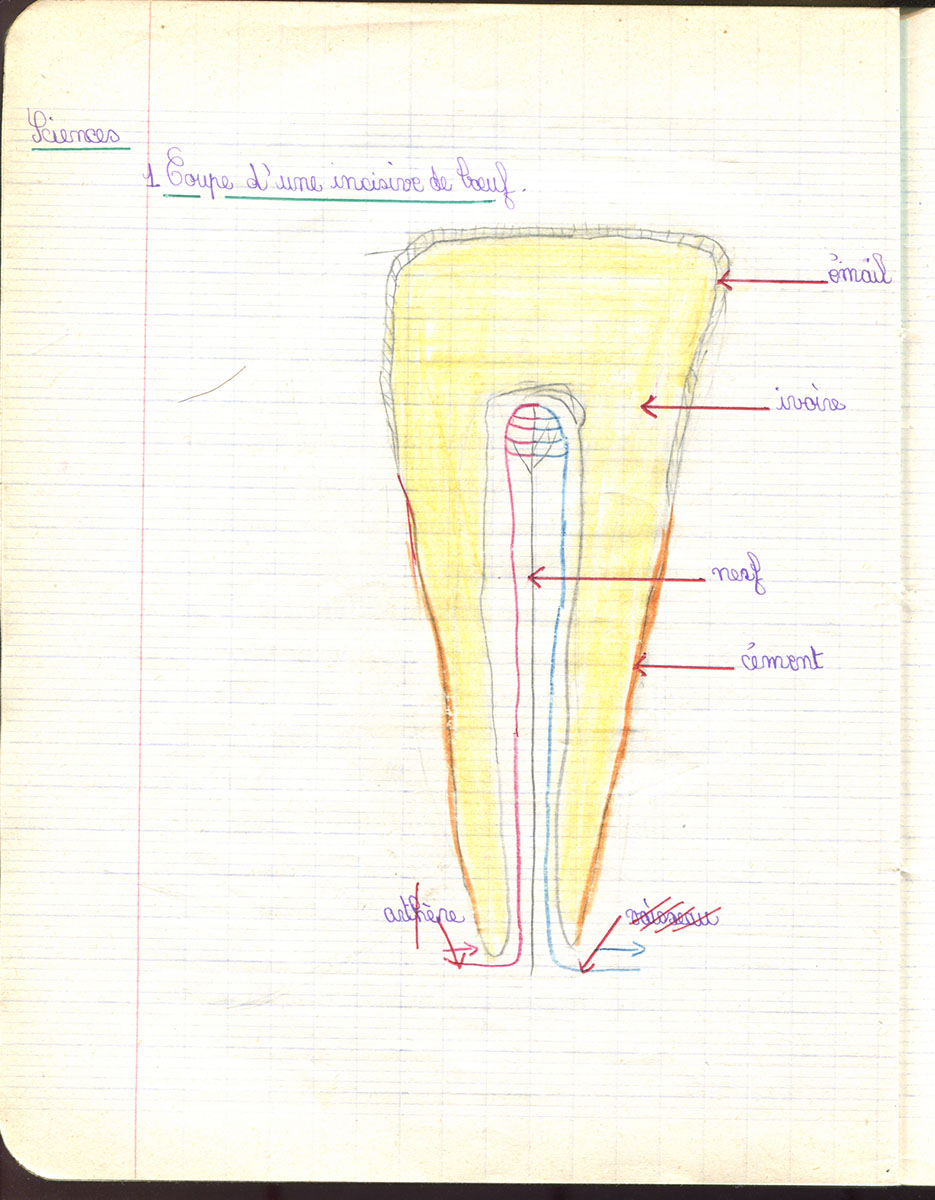 Sciences
1 Coupe d'une incisive de bœuf.
émail
ivoire
nerf
cément
arthère
vaisseau